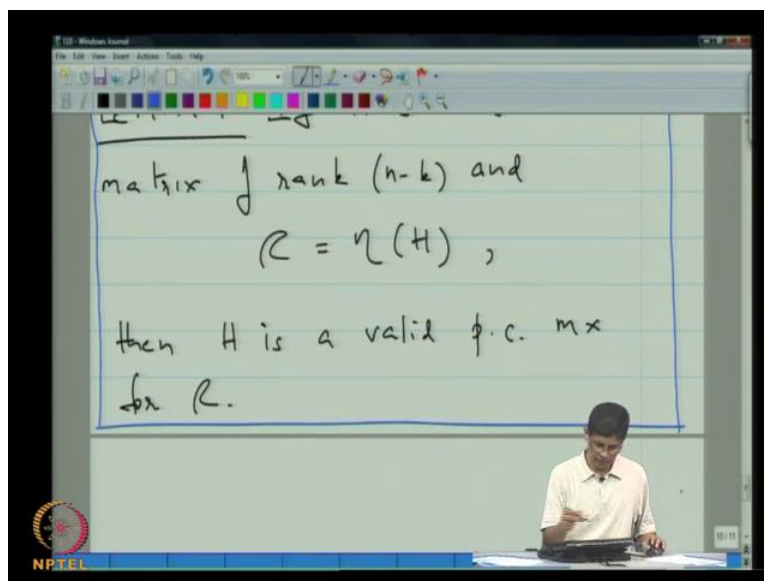 130 - Windows Journal
File Edit View Insert Actions Tools Help
100%
matrix of rank (n-k) and
C = η(H) ,
then H is a valid p.c. mx
for C.
10/11
NPTEL